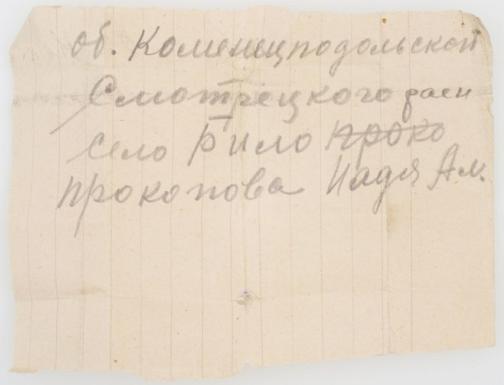 об. Коменецподольской
Смотрецкого раен
село Рило ~~проко~~
Прокопова Надя Ам.